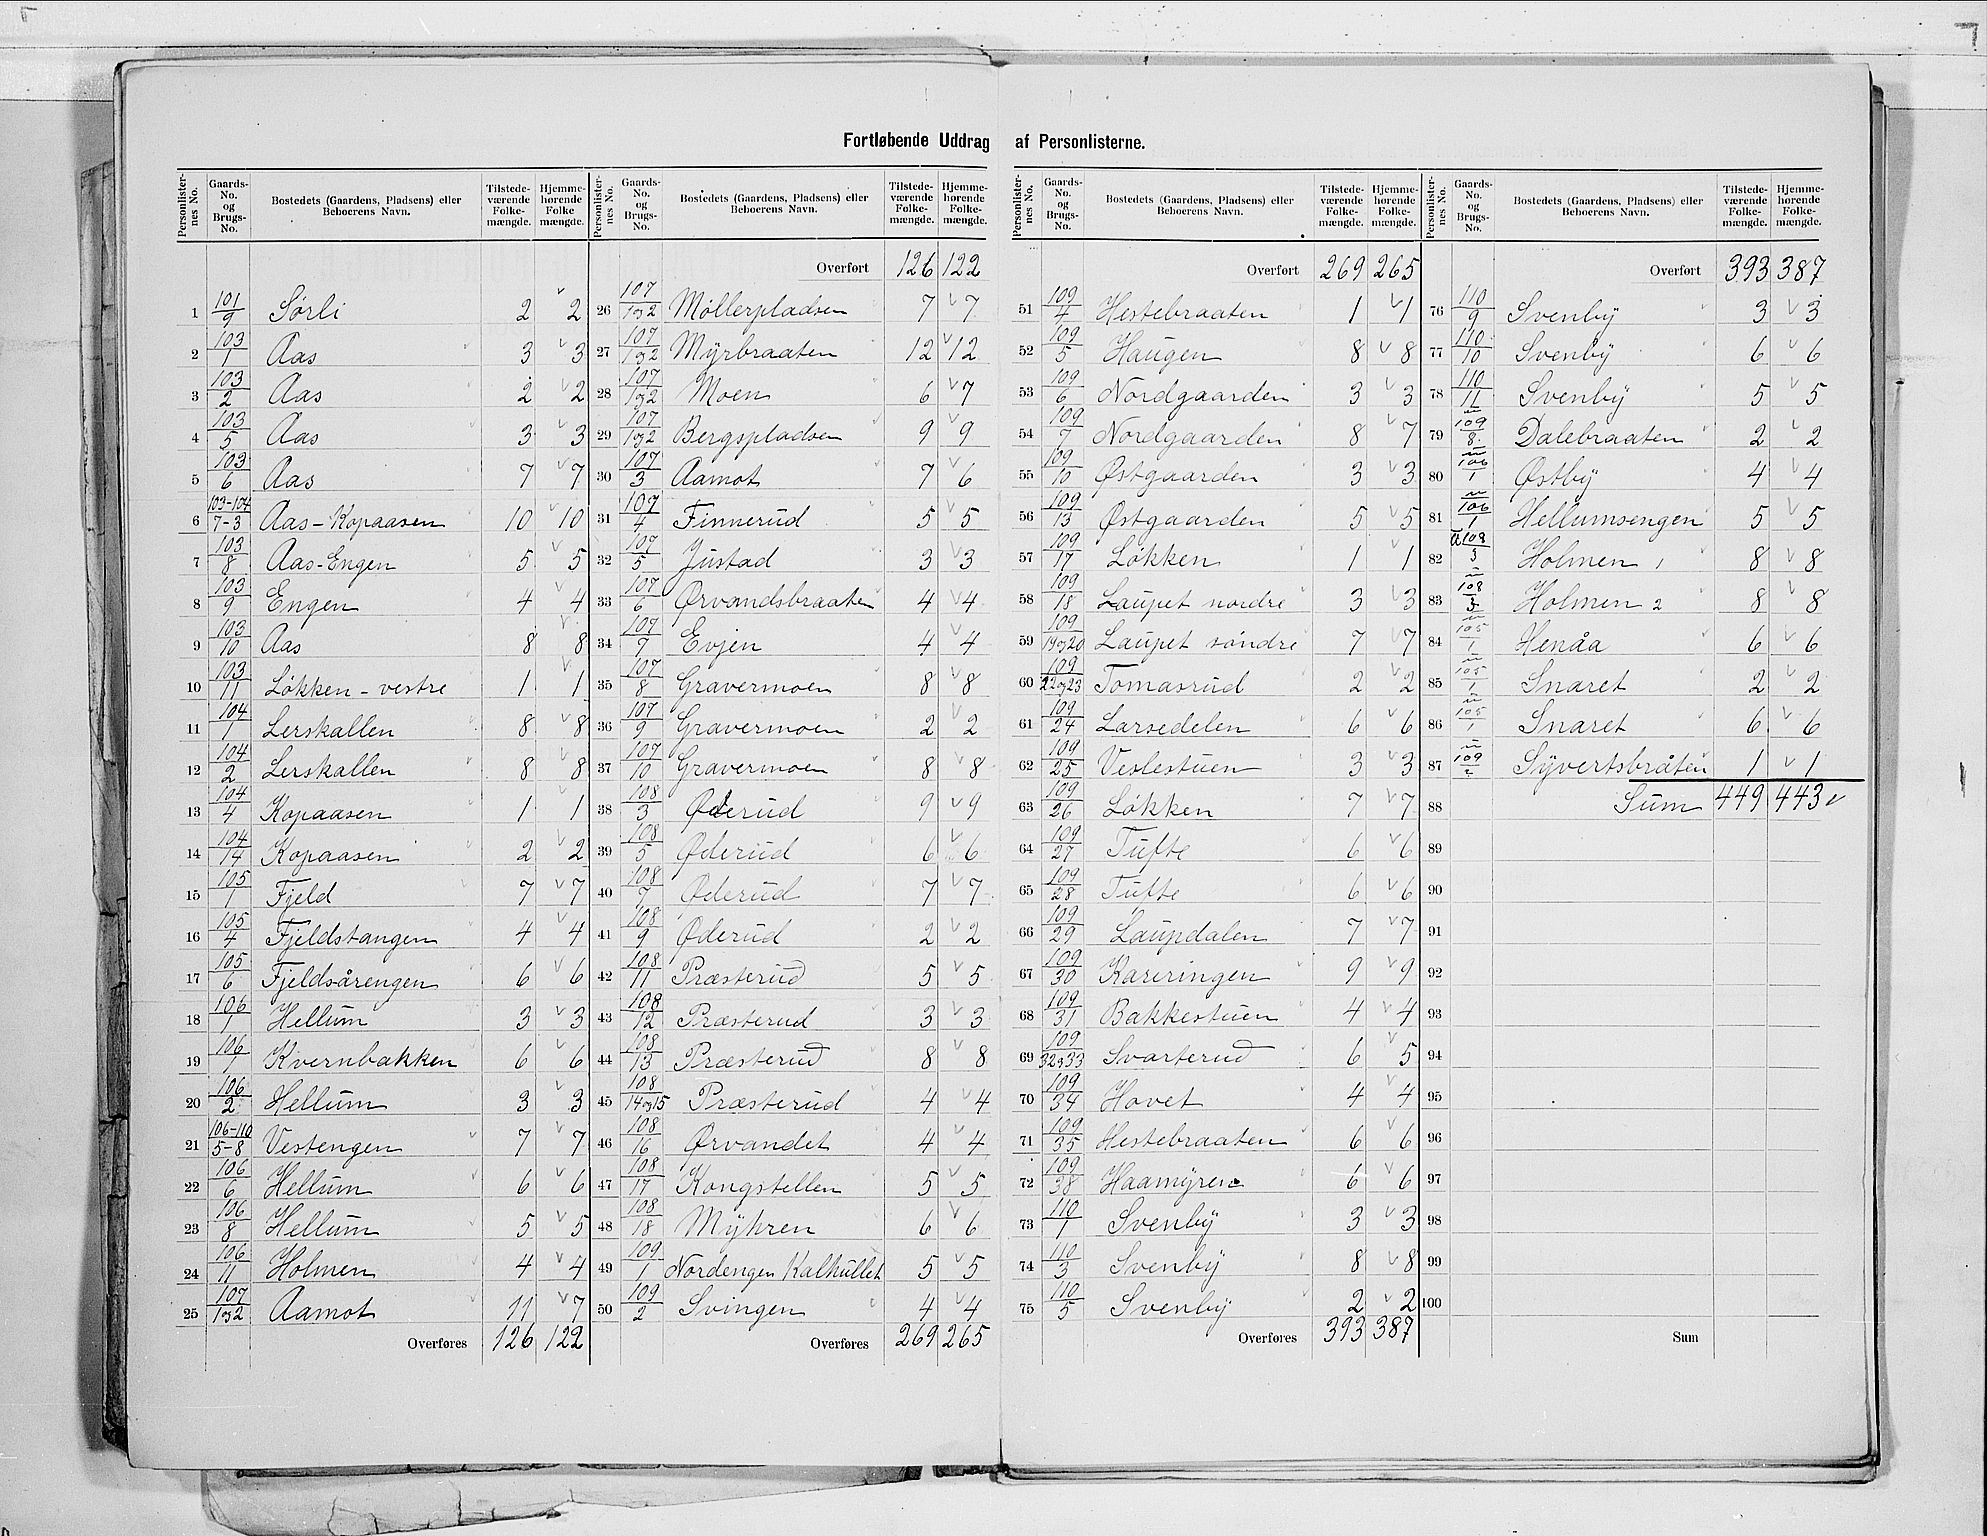 Fortløbende Uddrag af Personlisterne.
Personlister-nes No. | Gaards-No. og Brugs-No. | Bostedets (Gaardens, Pladsens) eller Beboerens Navn. | Tilstede-værende Folke-mængde. | Hjemme-hørende Folke mængde.
1 101/9 Sørli 2 2
2 103/1 Aas 3 3
3 103/2 Aas 2 2
4 103/5 Aas 3 3
5 103/6 Aas 7 7
6 103-104/7-3 Aas-Kopaasen 10 10
7 103/8 Aas-Engen 5 5
8 103/9 Engen 4 4
9 103/10 Aas 8 8
10 103/11 Løkken-vestre 1 1
11 104/1 Lerskallen 8 8
12 104/2 Lerskallen 8 8
13 104/4 Kopaasen 1 1
14 104/14 Kopaasen 2 2
15 105/1 Fjeld 7 7
16 105/4 Fjeldstangen 4 4
17 105/6 Fjeldsårengen 6 6
18 106/1 Hellum 3 3
19 106/1 Kvernbakken 6 6
20 106/2 Hellum 3 3
21 106-110/5-8 Vestengen 7 7
22 106/6 Hellum 6 6
23 106/8 Hellum 5 5
24 106/11 Holmen 4 4
25 107/1og2 Aamot 11 7
Overføres 126 122
Personlister-nes No. | Gaards-No. og Brugs-No. | Bostedets (Gaardens, Pladsens) eller Beboerens Navn. | Tilstede-værende Folke-mængde. | Hjemme-hørende Folke-mængde.
Overført 126 122
26 107/1og2 Møllerpladsen 7 7
27 107/1og2 Myrbraaten 12 12
28 107/1og2 Moen 6 7
29 107/1og2 Bergspladsen 9 9
30 107/3 Aamot 7 6
31 107/4 Finnerud 5 5
32 107/5 Justad 3 3
33 107/6 Ørvandsbraaten 4 4
34 107/7 Evjen 4 4
35 107/8 Gravermoen 8 8
36 107/9 Gravermoen 2 2
37 107/10 Gravermoen 8 8
38 108/3 Øderud 9 9
39 108/5 Øderud 6 6
40 108/7 Øderud 7 7
41 108/9 Øderud 2 2
42 108/11 Præsterud 5 5
43 108/12 Præsterud 3 3
44 108/13 Præsterud 8 8
45 108/14og15 Præsterud 4 4
46 108/16 Ørvandet 4 4
47 108/17 Kongstellen 5 5
48 108/18 Myhren 6 6
49 109/1 Nordengen Kalhullet 5 5
50 109/2 Svingen 4 4
Overføres 269 265
Personlister-nes No. | Gaards-No. og Brugs-No. | Bostedets (Gaardens, Pladsens) eller Beboerens Navn. | Tilstede-værende Folke-mængde. | Hjemme-hørende Folke-mængde.
Overført 269 265
51 109/4 Hestebraaten 1 1
52 109/5 Haugen 8 8
53 109/6 Nordgaarden 3 3
54 109/7 Nordgaarden 8 7
55 109/10 Østgaarden 3 3
56 109/13 Østgaarden 5 5
57 109/17 Løkken 1 1
58 109/18 Laupet nordre 3 3
59 109/19og20 Laupet søndre 7 7
60 109/22og23 Tomasrud 2 2
61 109/24 Larsedelen 6 6
62 109/25 Veslestuen 3 3
63 109/26 Løkken 7 7
64 109/27 Tufte 6 6
65 109/28 Tufte 6 6
66 109/29 Laupdalen 7 7
67 109/30 Kareringen 9 9
68 109/31 Bakkestuen 4 4
69 109/32og33 Svarterud 6 5
70 109/34 Hovet 4 4
71 109/35 Hestebraaten 6 6
72 109/38 Haamyren 6 6
73 110/1 Svenby 3 3
74 110/3 Svenby 8 8
75 110/5 Svenby 2 2
Overføres 393 387
Personlister-nes No. | Gaards-No. og Brugs-No. | Bostedets (Gaardens, Pladsens) eller Beboerens Navn. | Tilstede-værende Folke-mængde. | Hjemme-hørende Folke-mængde.
Overført 393 387
76 110/9 Svenby 3 3
77 110/10 Svenby 6 6
78 110/11 Svenby 5 5
79 u 109/8 Dalebraaten 2 2
80 u 106/1 Østby 4 4
81 u 106/1 Hellumsengen 5 5
82 u 108/3 Holmen 1 8 8
83 u 108/3 Holmen 2 8 8
84 u 105/1 Henåa 6 6
85 u 105/1 Snaret 2 2
86 u 105/1 Snaret 6 6
87 u 109/2 Syvertsbråten 1 1
88 Sum 449 443
89
90
91
92
93
94
95
96
97
98
99
100
Sum